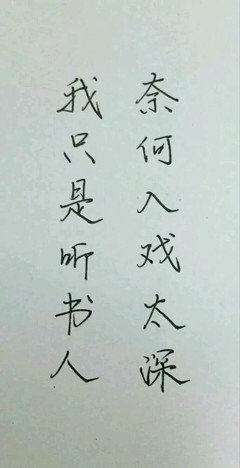 奈何入戏太深
我只是听书人